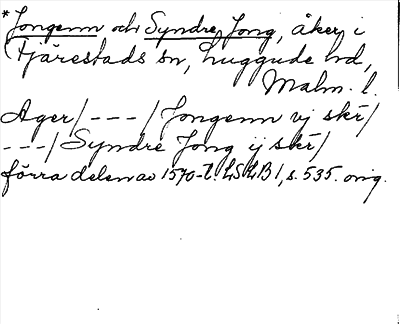 *Jongenn och Syndre Jong, åker i
Fjärestads sn, Luggude hd,
Malm. l.
Ager/---/Jongenn vj skr/
---/Syndre Jong ij skr/
förra delen av 1570-t. LSLB I, s. 535. orig.